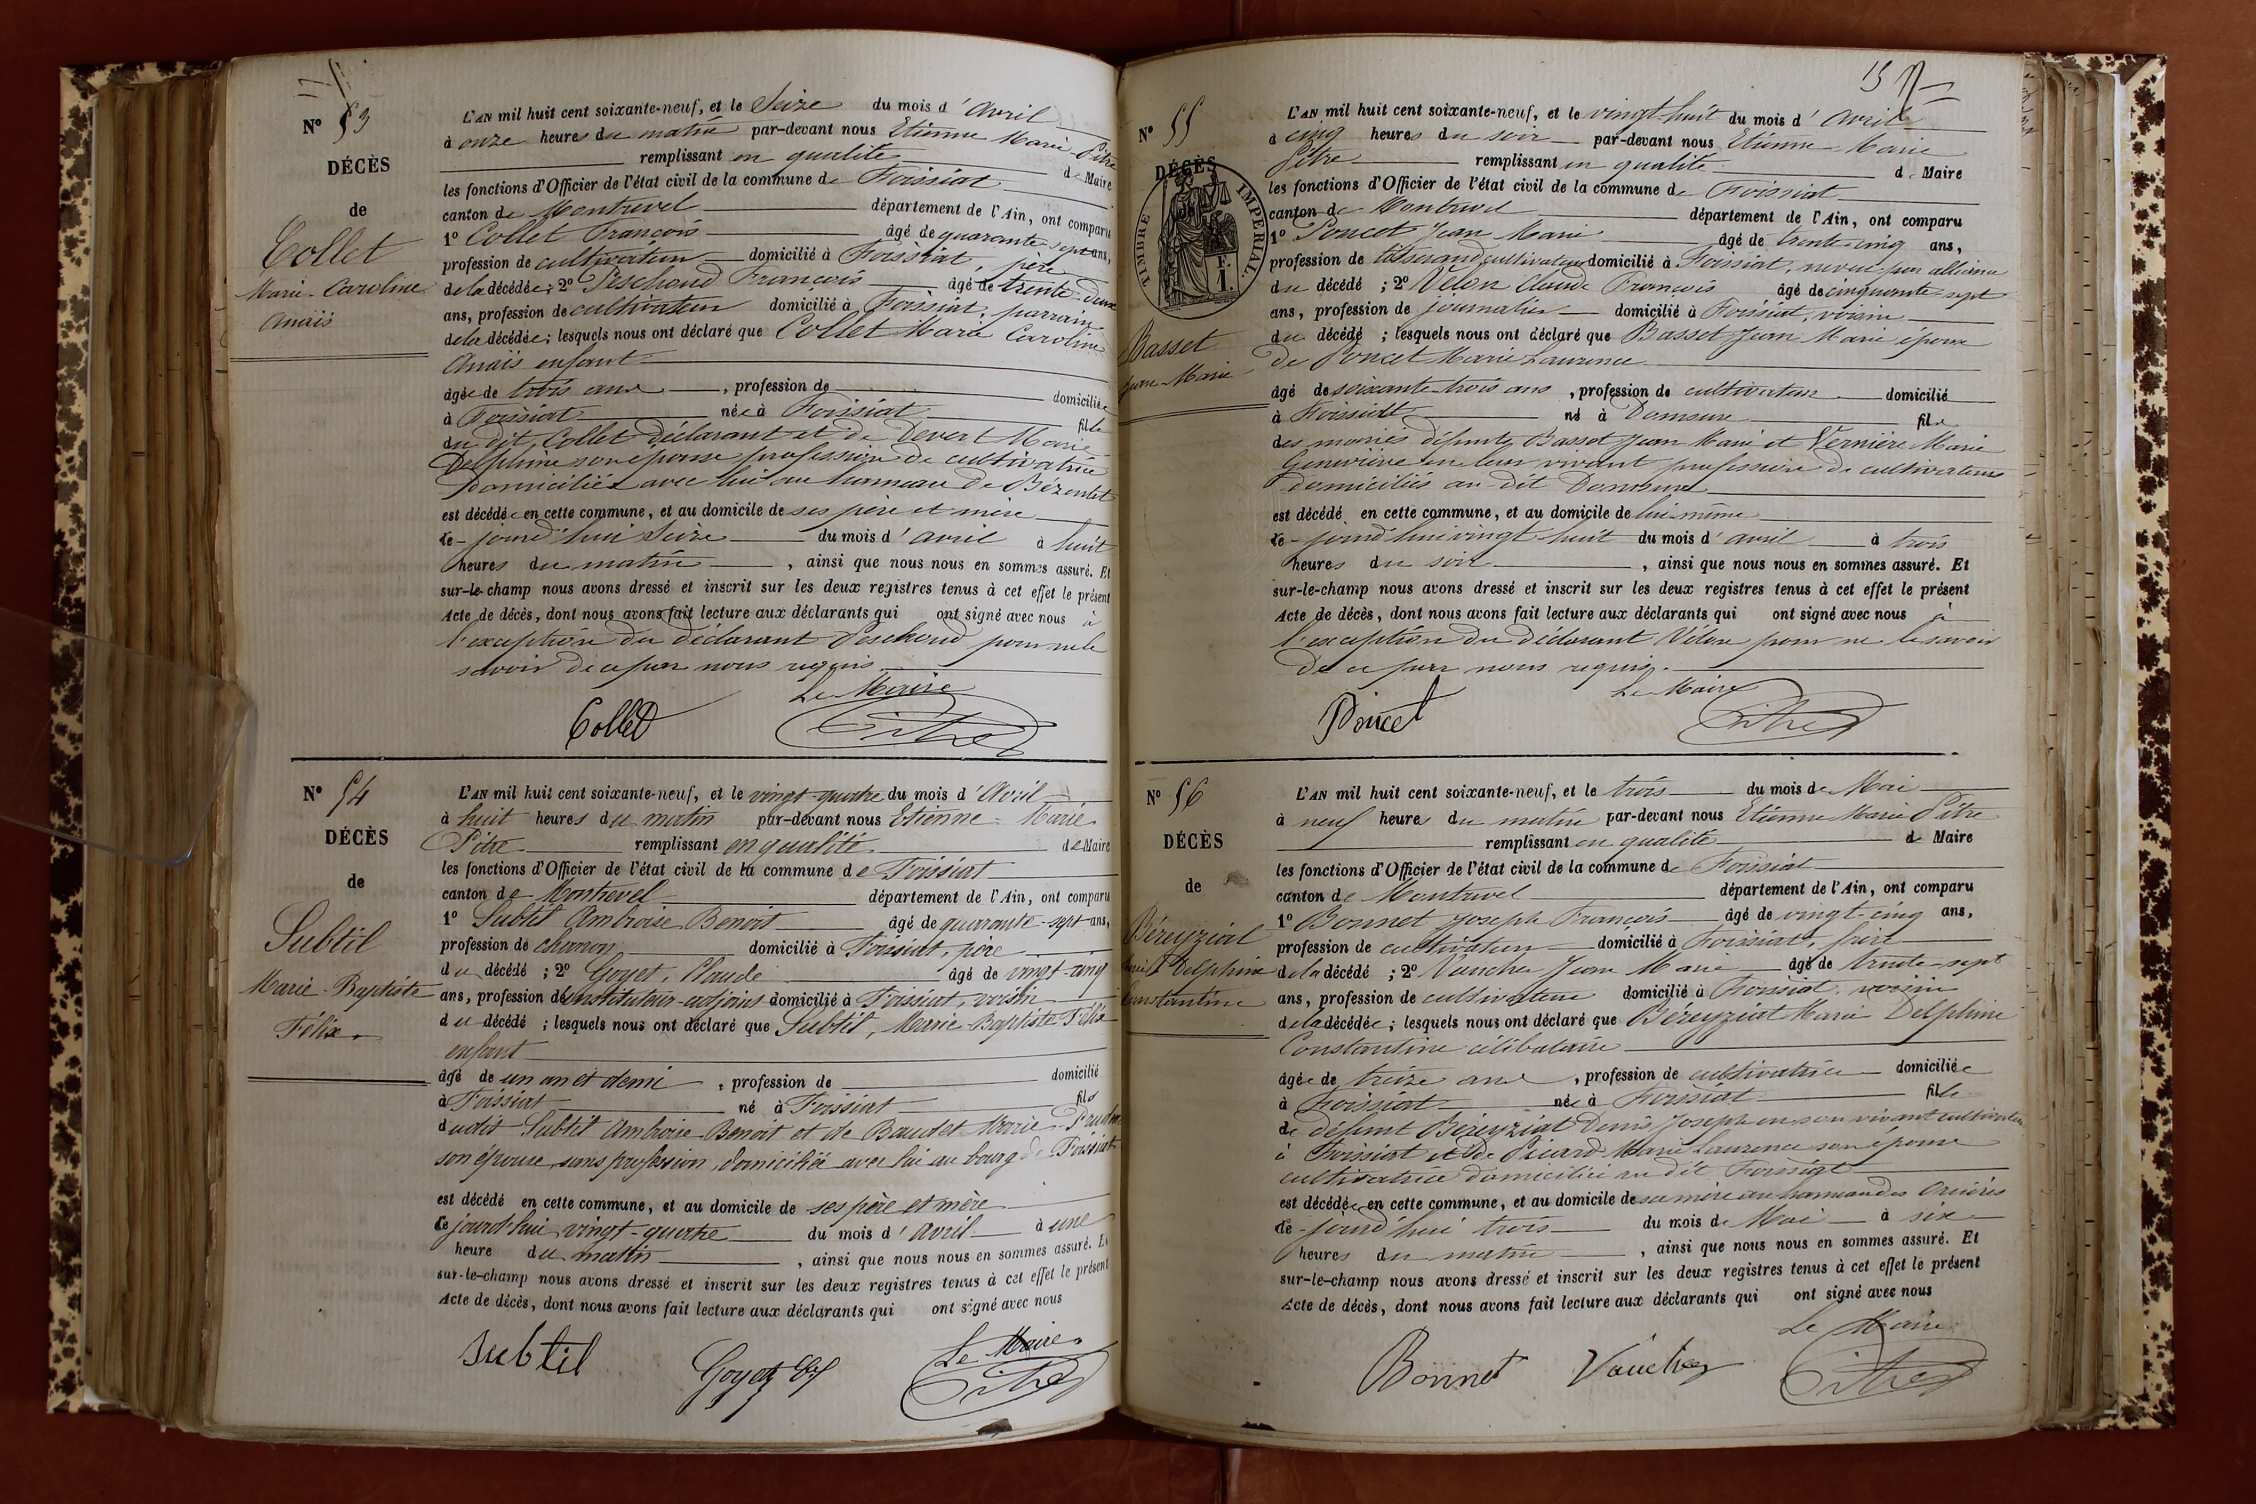 N° 53
DÉCÈS
de
Collet
Marie-Caroline
Anaïs
L'AN mil huit cent soixante-neuf, et le Seize du mois d'Avril
à onze heures du matin par-devant nous Etienne Marie Pitre
remplissant en qualité de Maire
les fonctions d'Officier de l'état civil de la commune de Foissiat
canton de Montrevel département de l'Ain, ont comparu
1° Collet François âgé de quarante-sept ans,
profession de cultivateur domicilié à Foissiat, père
de la décédée; 2° Peschoud François âgé de trente-deux
ans, profession de cultivateur domicilié à Foissiat, parrain
de la décédée; lesquels nous ont déclaré que Collet Marie Caroline
Anaïs enfant
âgée de trois ans, profession de domiciliée
à Foissiat née à Foissiat fille
du dit Collet déclarant et de Devert Marie
Delphine son épouse profession de cultivatrice
domiciliée avec lui au hameau de
est décédée en cette commune, et au domicile de ses père et mère
le jourd'hui Seize du mois d'avril à huit
heures du matin, ainsi que nous nous en sommes assuré. Et
sur-le-champ nous avons dressé et inscrit sur les deux registres tenus à cet effet le présent
Acte de décès, dont nous avons fait lecture aux déclarants qui ont signé avec nous à
l'exception du déclarant Peschoud pour ne le
savoir de ce par nous requis
Le Maire
Collet Pitre
N° 54
DÉCÈS
de
Subtil
Marie-Baptiste
Félix
L'AN mil huit cent soixante-neuf, et le vingt-quatre du mois d'Avril
à huit heures du matin par-devant nous Etienne-Marie
Pitre remplissant en qualité de Maire
les fonctions d'Officier de l'état civil de la commune de Foissiat
canton de Montrevel département de l'Ain, ont comparu
1° Subtil Ambroise Benoit âgé de quarante-sept ans,
profession de charron domicilié à Foissiat, père
du décédé; 2° Goyet, Claude âgé de vingt-cinq
ans, profession d'instituteur-adjoint domicilié à Foissiat, voisin
du décédé; lesquels nous ont déclaré que Subtil, Marie-Baptiste Félix
enfant
âgé de un an et demi, profession de domicilié
à Foissiat né à Foissiat fils
dudit Subtil Ambroise-Benoit et de Baudet Marie
son épouse, sans profession, domiciliée avec lui au bourg de Foissiat
est décédé en cette commune, et au domicile de ses père et mère
le jourd'hui vingt-quatre du mois d'avril à une
heure du matin, ainsi que nous nous en sommes assuré. Et
sur-le-champ nous avons dressé et inscrit sur les deux registres tenus à cet effet le présent
Acte de décès, dont nous avons fait lecture aux déclarants qui ont signé avec nous
Le Maire
Subtil Goyet Pitre
15
N° 55
DÉCÈS
de
TIMBRE IMPERIAL
1 F.
Basset
Jean-Marie
L'AN mil huit cent soixante-neuf, et le vingt-huit du mois d'Avril
à cinq heures du soir par-devant nous Etienne-Marie
Pitre remplissant en qualité de Maire
les fonctions d'Officier de l'état civil de la commune de Foissiat
canton de Montrevel département de l'Ain, ont comparu
1° Poncet Jean Marie âgé de trente-cinq ans,
profession de tisserand cultivateur domicilié à Foissiat, neveu par alliance
du décédé; 2° Velon Claude François âgé de cinquante-sept
ans, profession de journalier domicilié à Foissiat, voisin
du décédé; lesquels nous ont déclaré que Basset Jean Marie époux
de Poncet Marie Laurence
âgé de soixante-trois ans, profession de cultivateur domicilié
à Foissiat né à Domsure fils
des mariés défunts Basset Jean Marie et Vernière Marie
Geneviève en leur vivant profession de cultivateurs
domiciliés au dit Domsure
est décédé en cette commune, et au domicile de lui-même
le jourd'hui vingt-huit du mois d'avril à trois
heures du soir, ainsi que nous nous en sommes assuré. Et
sur-le-champ nous avons dressé et inscrit sur les deux registres tenus à cet effet le présent
Acte de décès, dont nous avons fait lecture aux déclarants qui ont signé avec nous à
l'exception du déclarant Velon pour ne le savoir
de ce par nous requis.
Le Maire
Poncet Pitre
N° 56
DÉCÈS
de
Béreyziat
Marie Delphine
Constantine
L'AN mil huit cent soixante-neuf, et le trois du mois de Mai
à neuf heures du matin par-devant nous Etienne Marie Pitre
remplissant en qualité de Maire
les fonctions d'Officier de l'état civil de la commune de Foissiat
canton de Montrevel département de l'Ain, ont comparu
1° Bonnet Joseph François âgé de vingt-cinq ans,
profession de cultivateur domicilié à Foissiat, frère
de la décédé; 2° Vaucher Jean Marie âgé de trente-sept
ans, profession de cultivateur domicilié à Foissiat, voisin
de la décédée; lesquels nous ont déclaré que Béreyziat Marie Delphine
Constantine célibataire
âgée de treize ans, profession de cultivatrice domiciliée
à Foissiat née à Foissiat fille
de défunt Béreyziat Denis Joseph en son vivant cultivateur
à Foissiat et de Picard Marie Laurence son épouse
cultivatrice domiciliée au dit Foissiat
est décédée en cette commune, et au domicile de sa mère au hameau des
le jourd'hui trois du mois de Mai à six
heures du matin, ainsi que nous nous en sommes assuré. Et
sur-le-champ nous avons dressé et inscrit sur les deux registres tenus à cet effet le présent
Acte de décès, dont nous avons fait lecture aux déclarants qui ont signé avec nous
Le Maire
Bonnet Vaucher Pitre